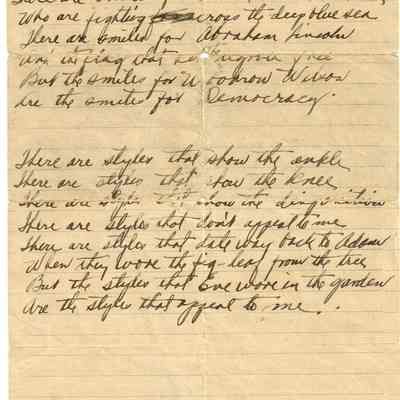 Who are fighting across the deep blue sea
There are smiles for Abraham Lincoln
was
But the smiles for Woodrow Wilson
are the smiles for Democracy.
There are styles that show the ankle
There are styles that show the Knee
There are styles that show the
There are styles that don't appeal to me
There are styles that date way back to Adam
When they wore the fig-leaf from the tree
But the styles that Eve wore in the garden
Are the styles that appeal to me.